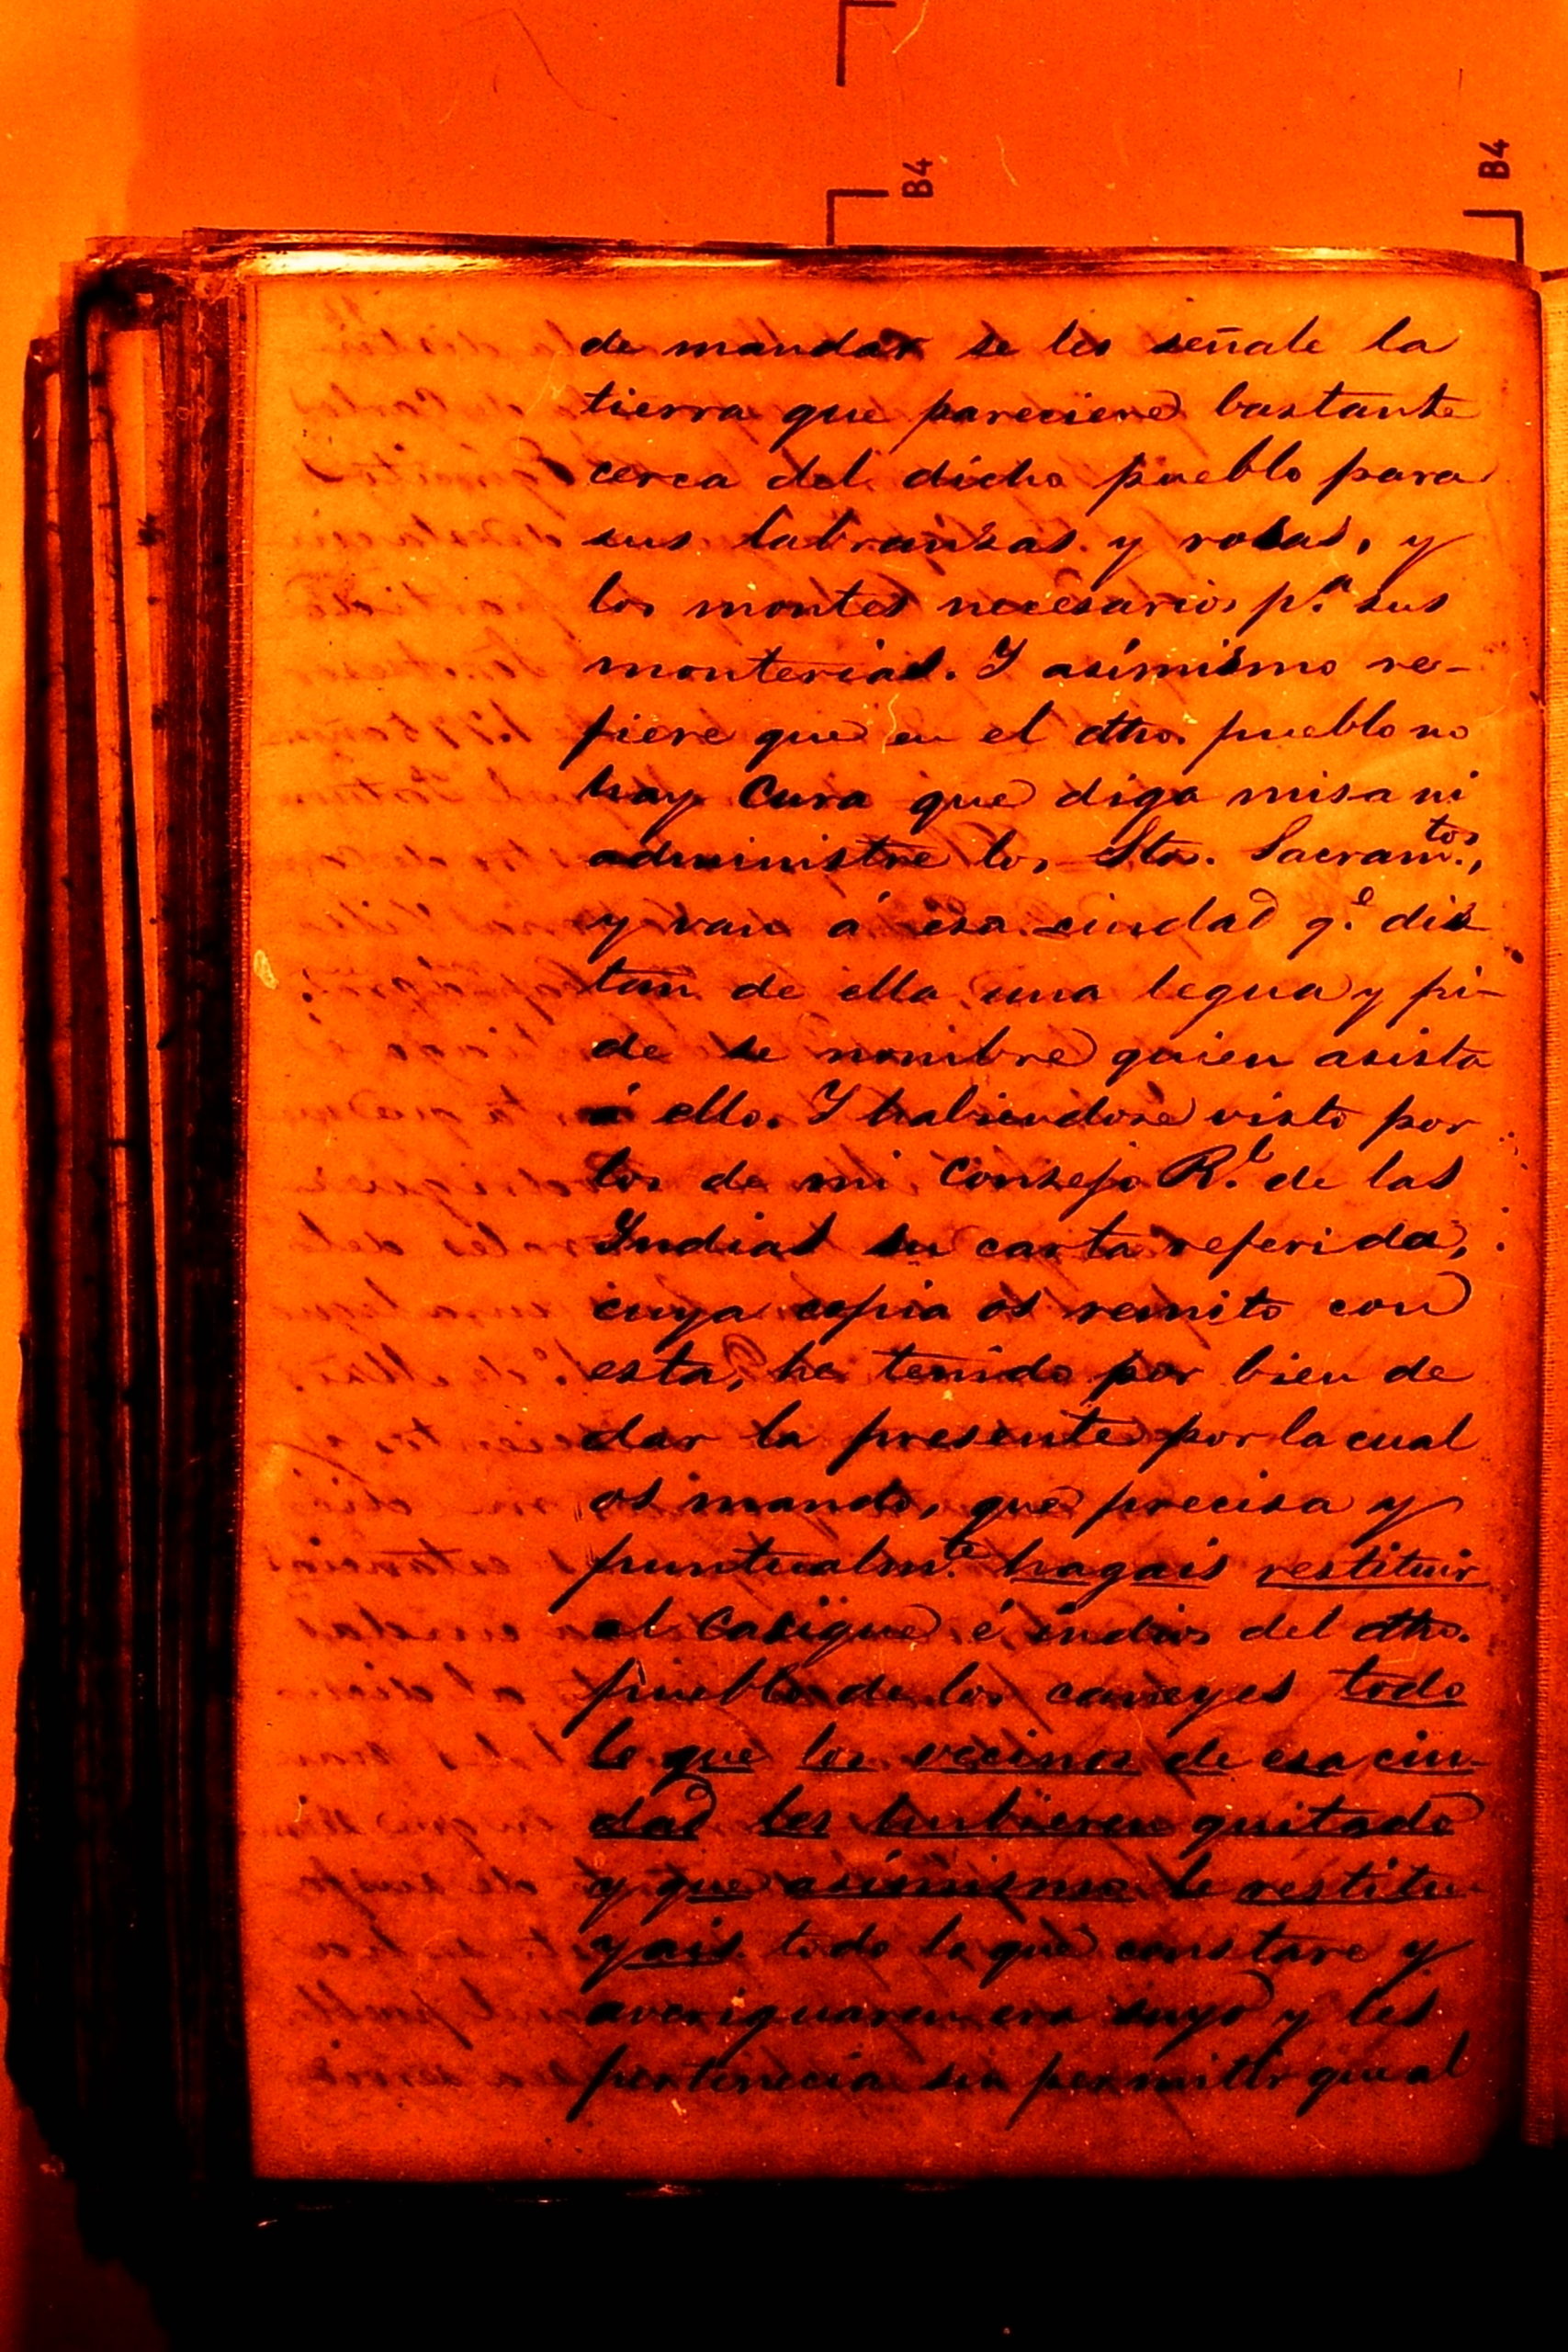 B4
B4
de mandar se les señale la
tierra que pareciere bastante
cerca del dicho pueblo para
sus labranzas y rosas, y
los montes necesarios p.ª sus
monterias. Y asimismo re-
fiere que en el dho. pueblo no
hay Cura que diga misa ni
administre los Stos. Sacram.tos,
y van á esa ciudad q.e dis
tan de ella una legua y pi-
de se nombre quien asista
á ello. Y habiendose visto por
los de mi Consejo R.l de las
Indias su carta referida,
cuya copia os remito con
esta, he tenido por bien de
dar la presente por la cual
os mando, que precisa y
puntualm.te hagais restituir
al Casique é indios del dho.
pueblo de los caneyes todo
lo que los vecinos de esa ciu-
dad les hubieren quitado
y que asimismo le restitu-
yais todo lo que constare y
averiguaren era suyo y les
pertenecia sin permitir que al